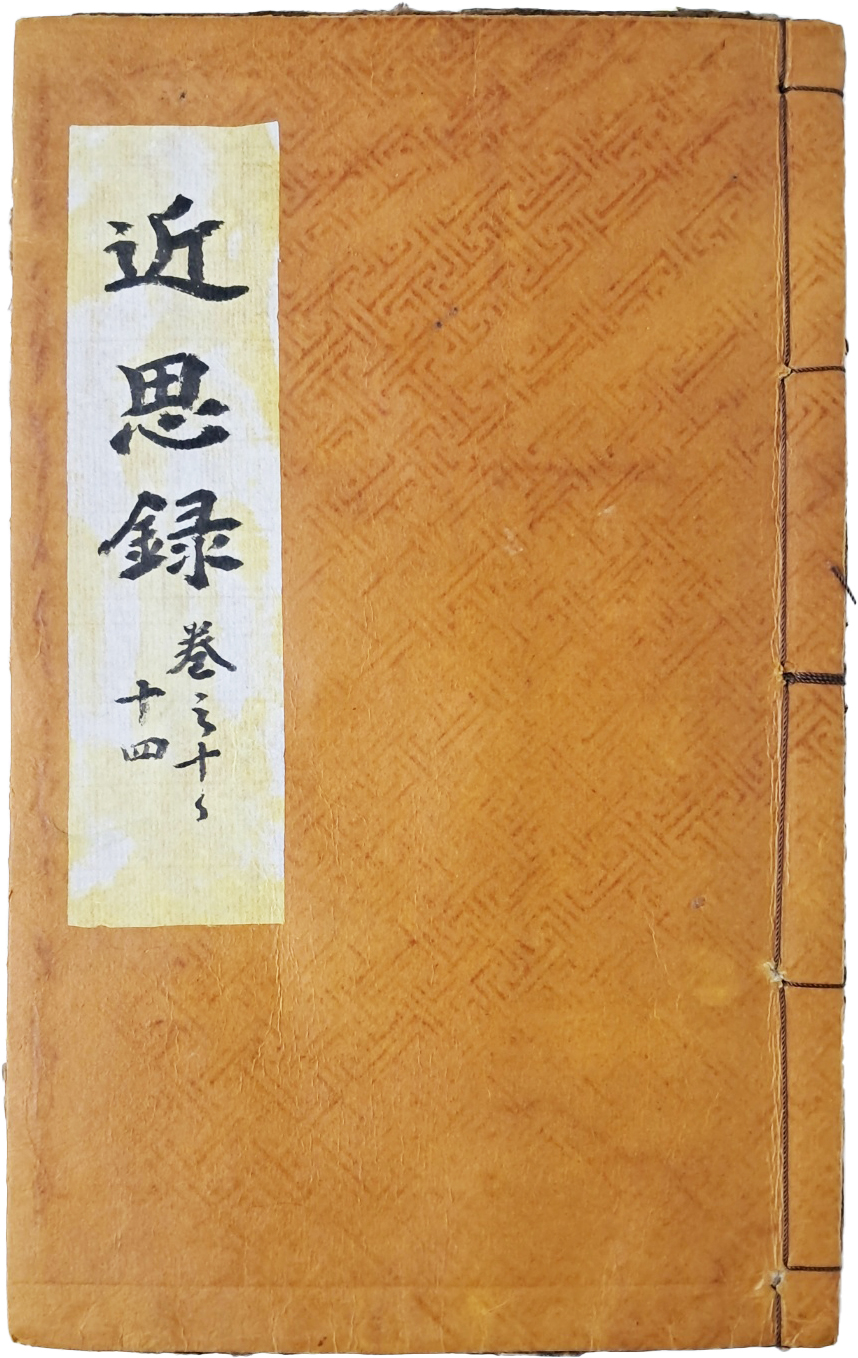 近思録
卷之十
十四